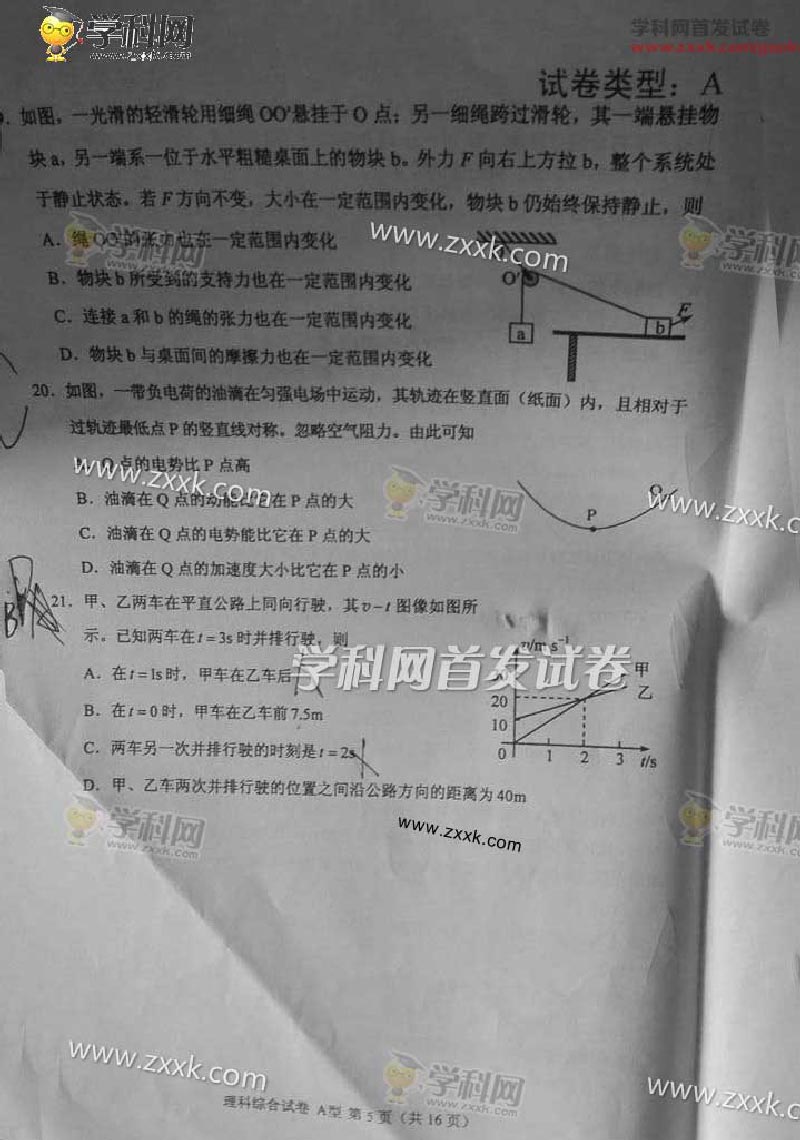 学科网
学科网首发试卷
试卷类型：A
如图，一光滑的轻滑轮用细绳OO'悬挂于O点；另一细绳跨过滑轮，其一端悬挂物
块a，另一端系一位于水平粗糙桌面上的物块b。外力F向右上方拉b，整个系统处
于静止状态。若F方向不变，大小在一定范围内变化，物块b仍始终保持静止，则
A．绳OO'的张力也在一定范围内变化
www.zxxk.com
学科网
zxxk.com
B．物块b所受到的支持力也在一定范围内变化
C．连接a和b的绳的张力也在一定范围内变化
D．物块b与桌面间的摩擦力也在一定范围内变化
O'
a
b
F
20．如图，一带负电荷的油滴在匀强电场中运动，其轨迹在竖直面（纸面）内，且相对于
过轨迹最低点P的竖直线对称。忽略空气阻力。由此可知
Q点的电势比P点高
www.zxxk.com
B．油滴在Q点的动能比它在P点的大
C．油滴在Q点的电势能比它在P点的大
D．油滴在Q点的加速度大小比它在P点的小
学科网
zxxk.com
P
Q
www.zxxk.c
21．甲、乙两车在平直公路上同向行驶，其v-t图像如图所
示。已知两车在t=3s时并排行驶，则
学科网首发试卷
A．在t=1s时，甲车在乙车后
B．在t=0时，甲车在乙车前7.5m
C．两车另一次并排行驶的时刻是t=2s
D．甲、乙车两次并排行驶的位置之间沿公路方向的距离为40m
v/m·s⁻¹
甲
乙
20
10
0 1 2 3 t/s
www.zxxk.com
学科网
zxxk.com
学科网
www.zxxk.com
学科网
zxxk.com
www.zxxk.c
理科综合试卷 A型 第5页（共16页）